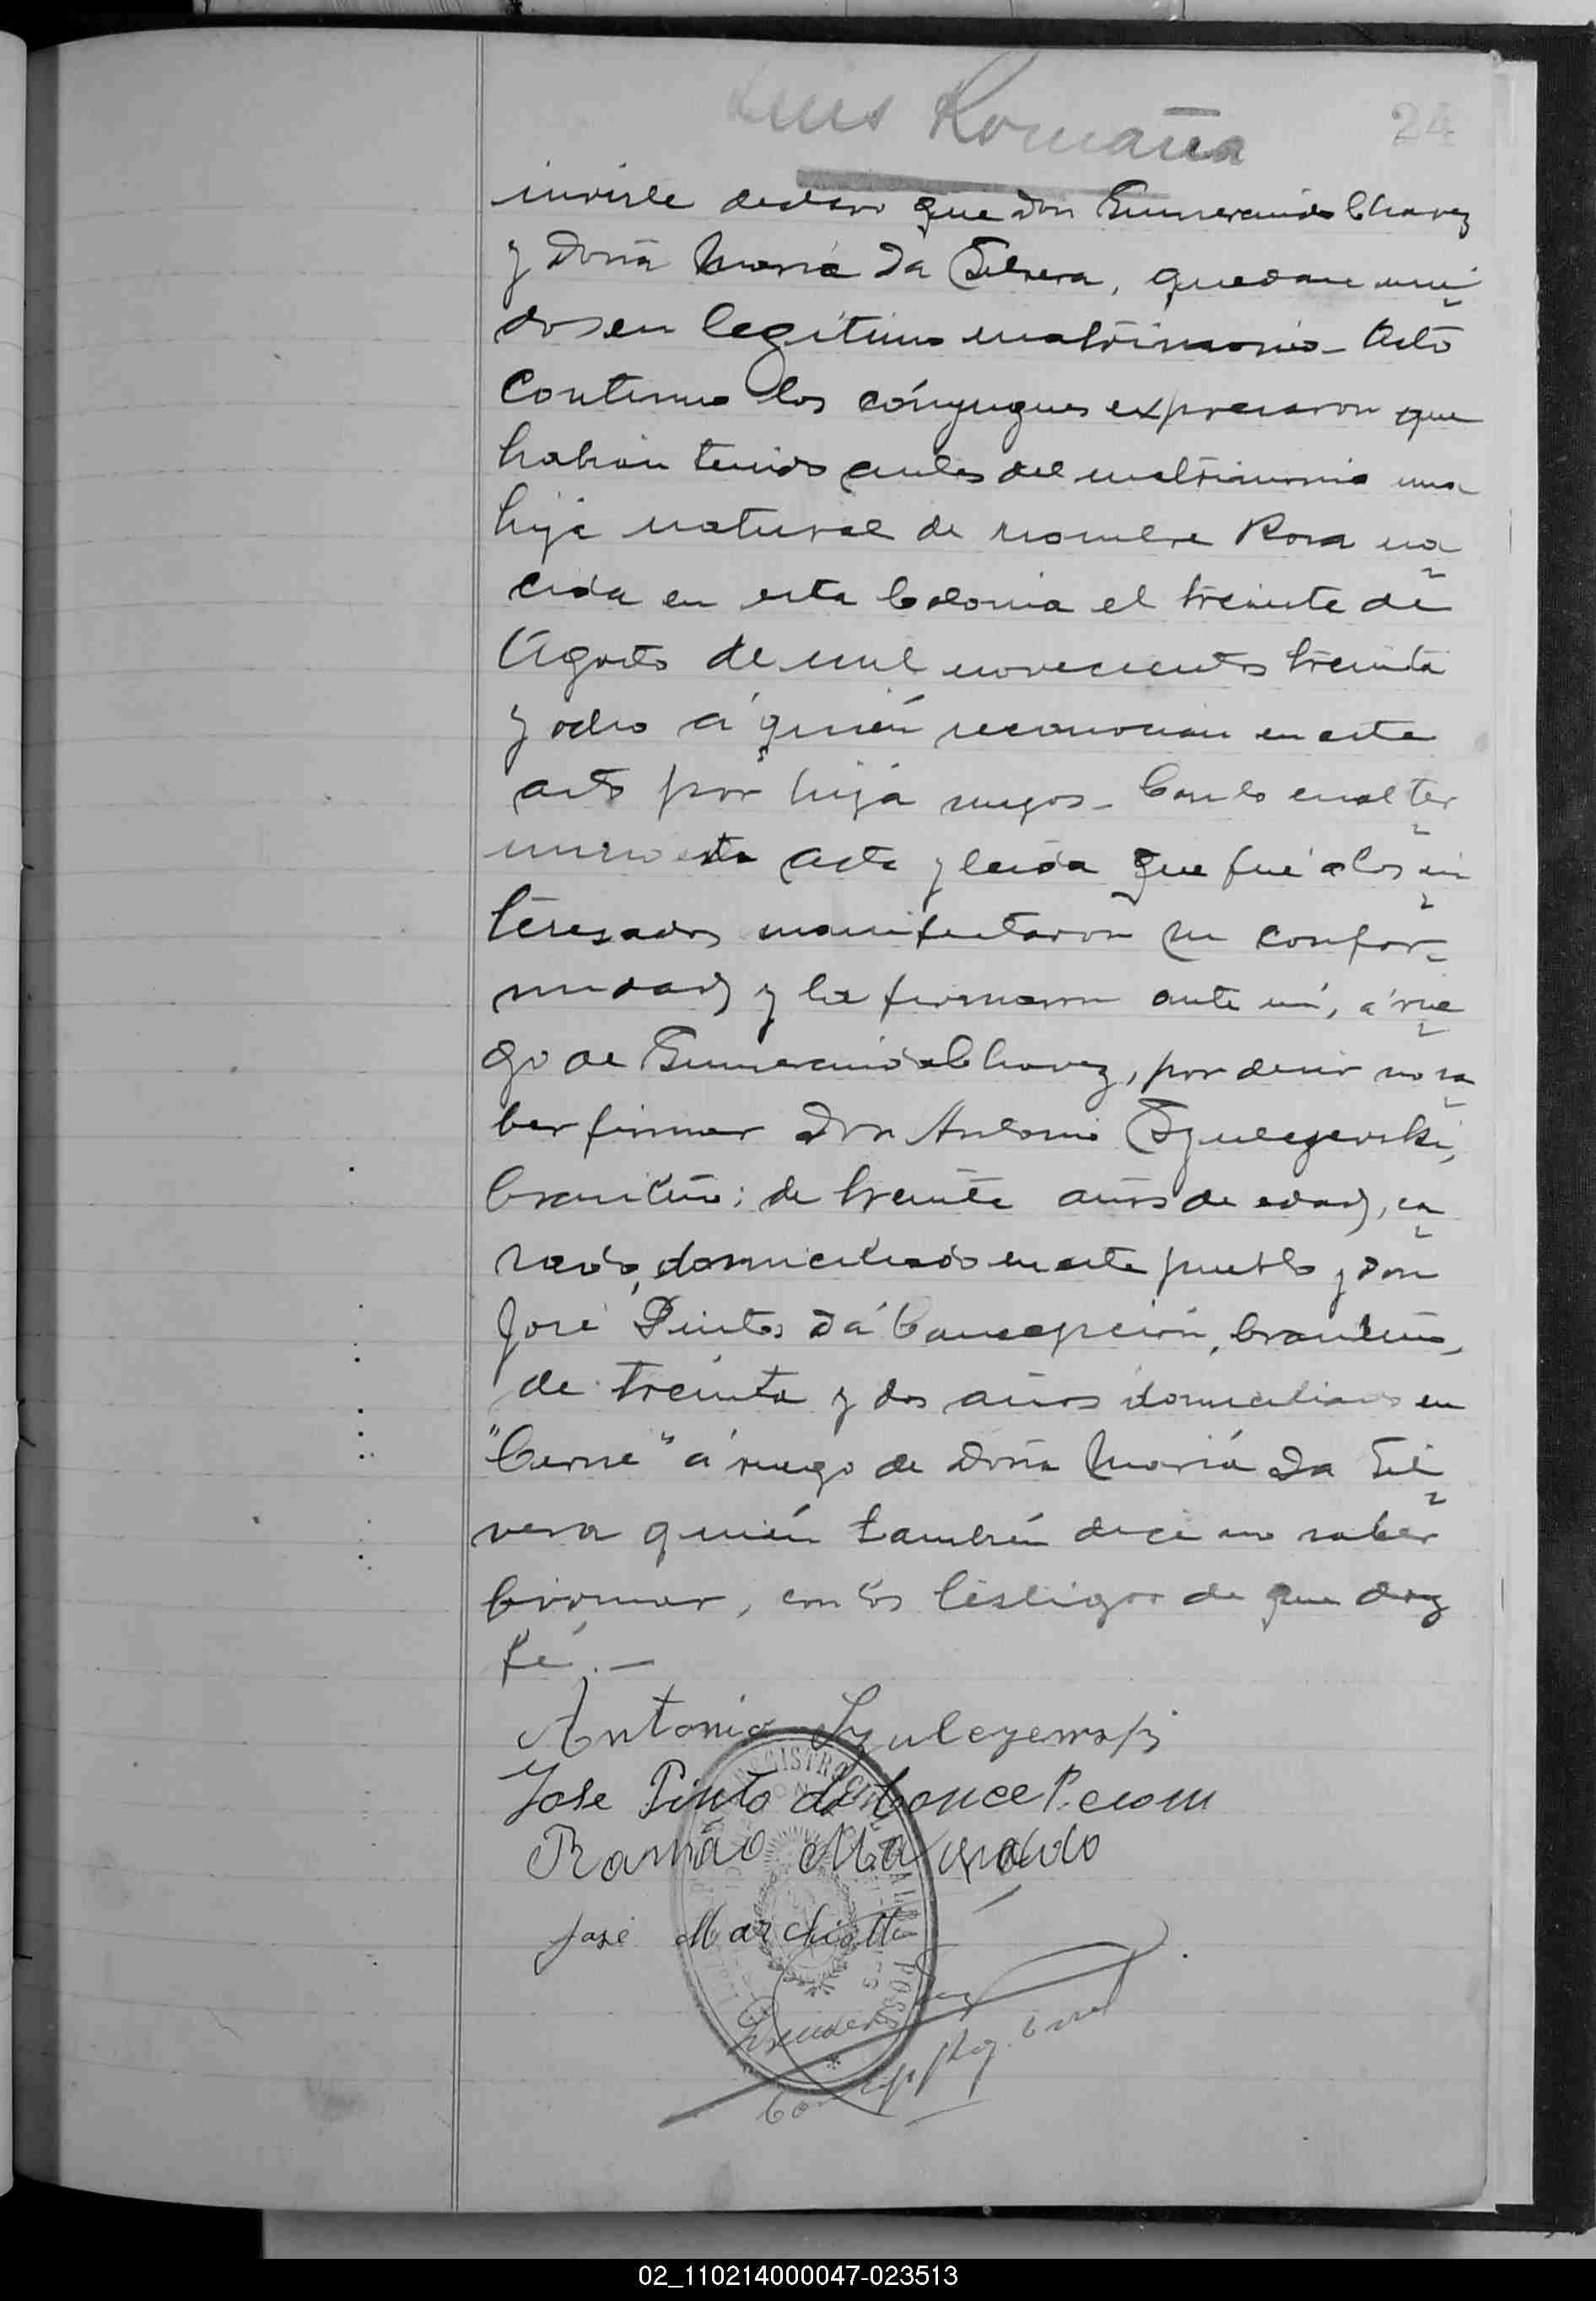 Luis Romaña
24
inviste declaro que don Gumercindo Chavez
y Doña María Da Silvera, quedan uni
dos en legítimo matrimonio - Acto
continuo los cónyugues expresaron que
habían tenido antes del matrimonio una
hija natural de nombre Rosa na
cida en esta Colonia el treinta de
Agosto de mil novecientos treinta
y ocho á quién reconocian en este
acto por hija suyos - Con lo cual ter
minó esta acta y leída que fué a los in
teresados manifestaron su confor-
midad y la firmaron ante mí, á rue
go de Gumercindo Chavez, por decir no sa
ber firmar Don Antonio Szulczewski,
brasileño; de treinta años de edad, ca
sado, domiciliado en este pueblo y Don
José Pintos dá Concepción, brasileño,
de treinta y dos años domiciliado en
"Cerne" á ruego de Doña María Da Sil
vera quién también dice no saber
firmar, con los testigos de que doy
fé. —
Antonio Szulczewski
Jose Pinto da Concepcion
Ramão Machado
José Marchiotti
REGISTRO
Reg. Civil
02_110214000047-023513